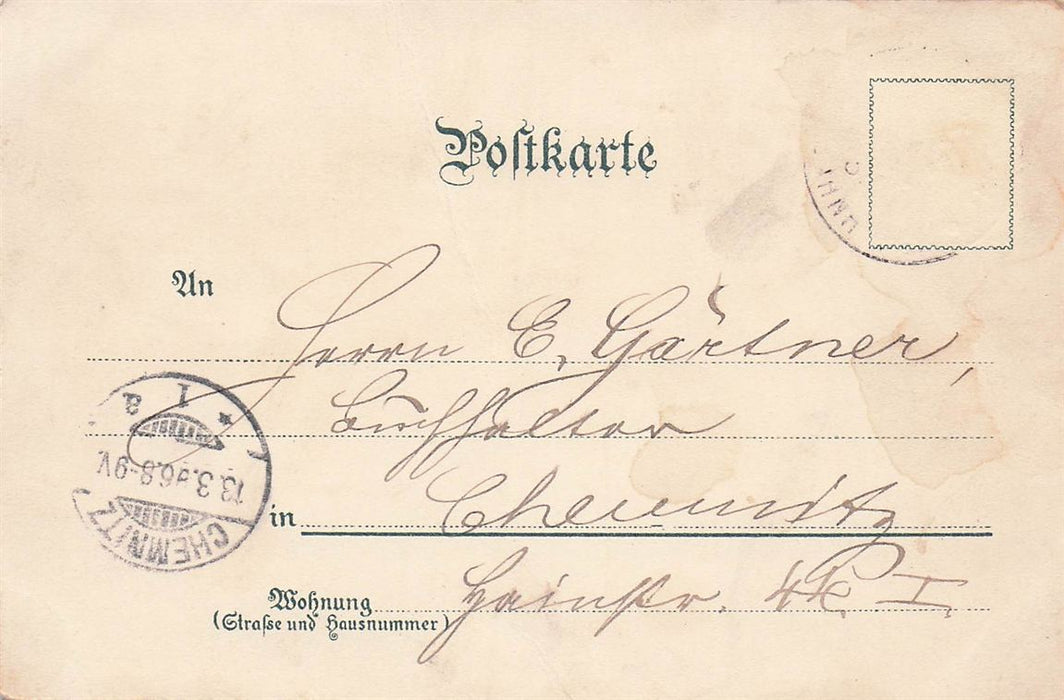 Postkarte
An
Herrn E. Gärtner,
Buchhalter
in Chemnitz
Wohnung Hainstr. 44 I.
(Straße und Hausnummer)
CHEMNITZ
13.3.96.8-9V.
* 1 a